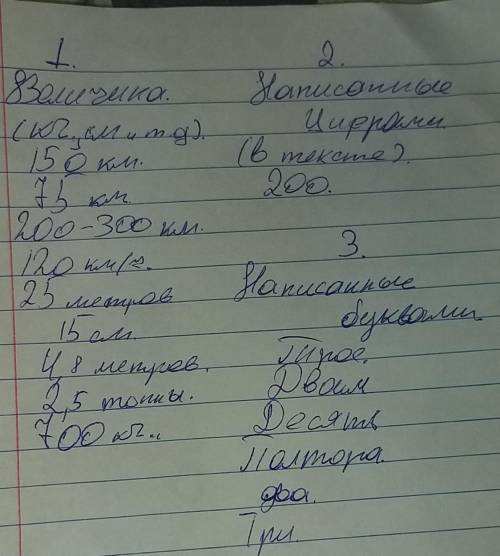 1.
Величина.
(кг, см и т д).
150 км.
75 км
200-300 км.
120 км/ч.
25 метров
15 см.
4,8 метров.
2,5 тонны.
700 кг.
2.
Написанные
Цифрами
(в тексте).
200.
3.
Написанные
буквами
Трое.
Двоим
Десять
Полтора.
два.
Три.